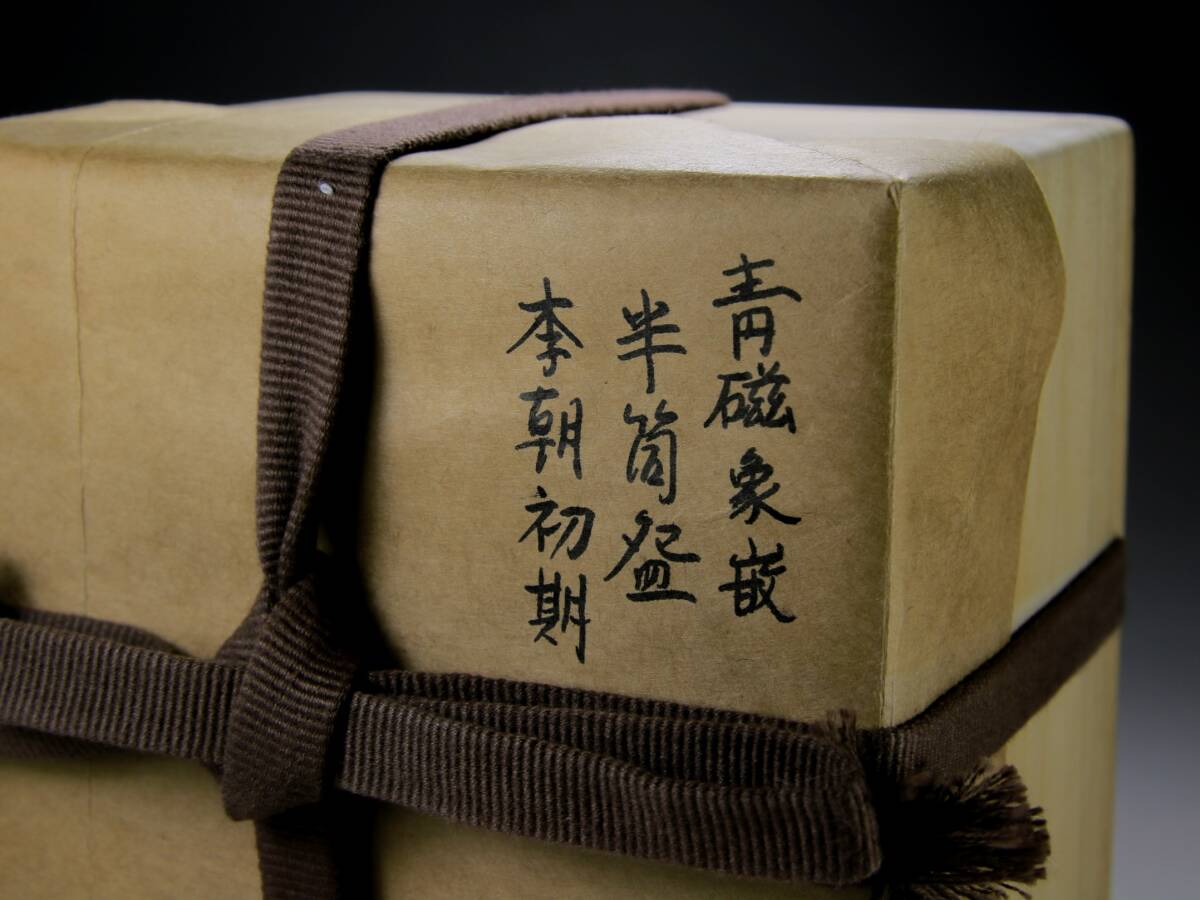 青磁象嵌
半筒盌
李朝初期